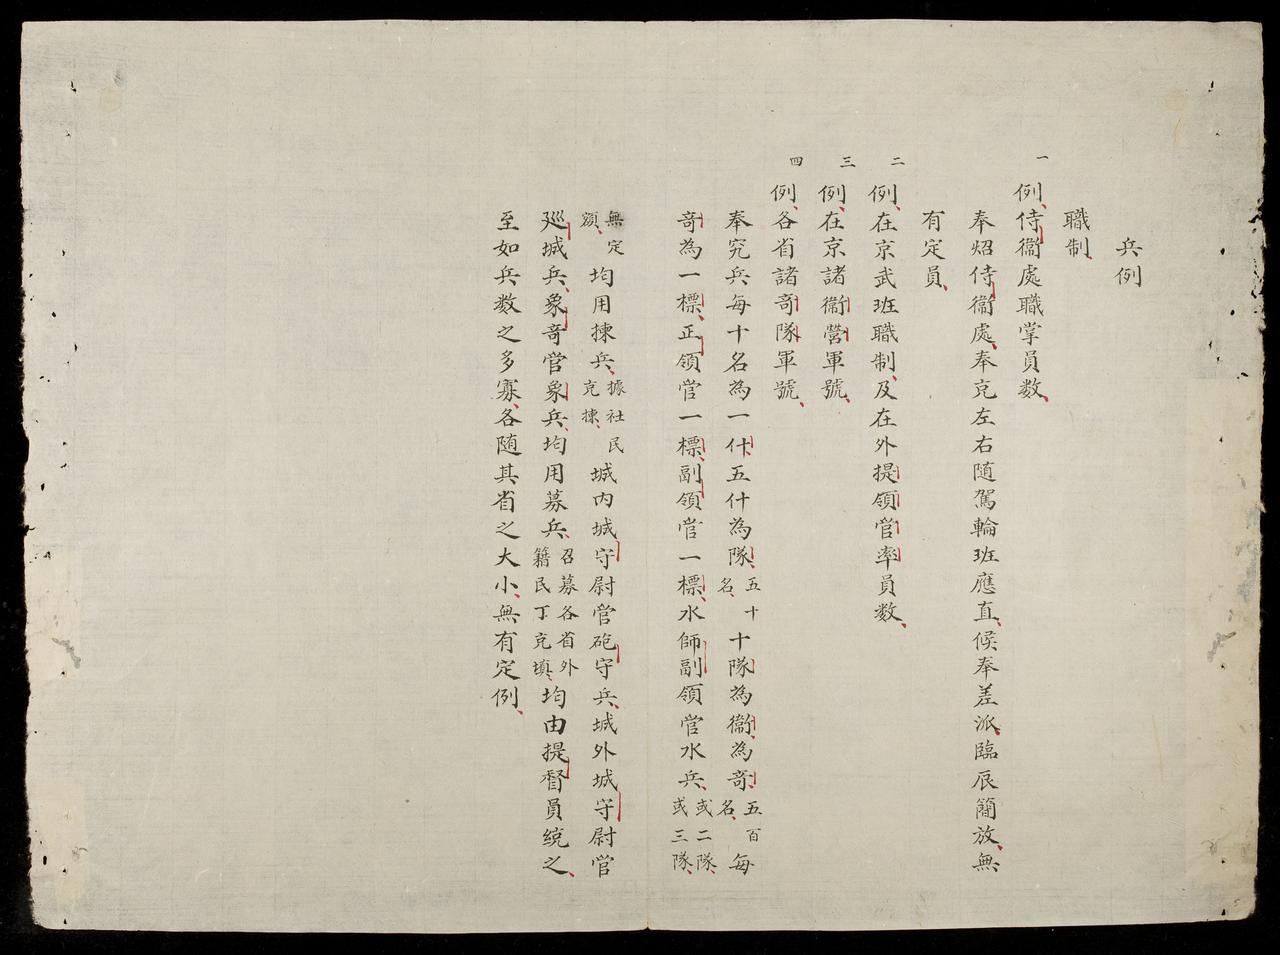 兵例
職制
一 例侍衞處職掌員数
奉炤侍衞處奉充左右随駕輪班應直候奉差派臨辰簡放無
有定員
二 例在京武班職制及在外提領管率員数
三 例在京諸衞營軍號
四 例各省諸奇隊軍號
奉究兵每十名為一什五什為隊五十名十隊為衞為奇五百名每
奇為一標正領管一標副領管一標水師副領管水兵或二隊或三隊
無定額均用揀兵據社民充揀城内城守尉管砲守兵城外城守尉管
廵城兵象奇管象兵均用募兵召募各省外籍民丁充填均由提督員統之
至如兵数之多寡各随其省之大小無有定例